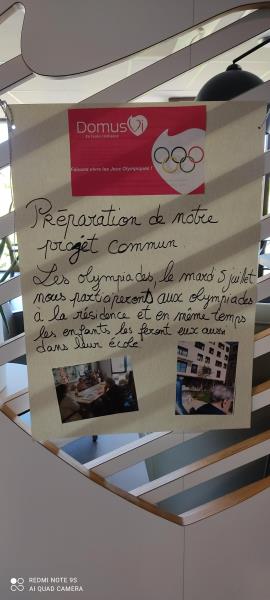 DomusVi
Faisons vivre les Jeux Olympiques !
Préparation de notre
projet commun.
Les olympiades, le mardi 5 juillet
nous participerons aux olympiades
à la résidence et en même temps
les enfants les feront eux aussi
dans leur école.
REDMI NOTE 9S
AI QUAD CAMERA